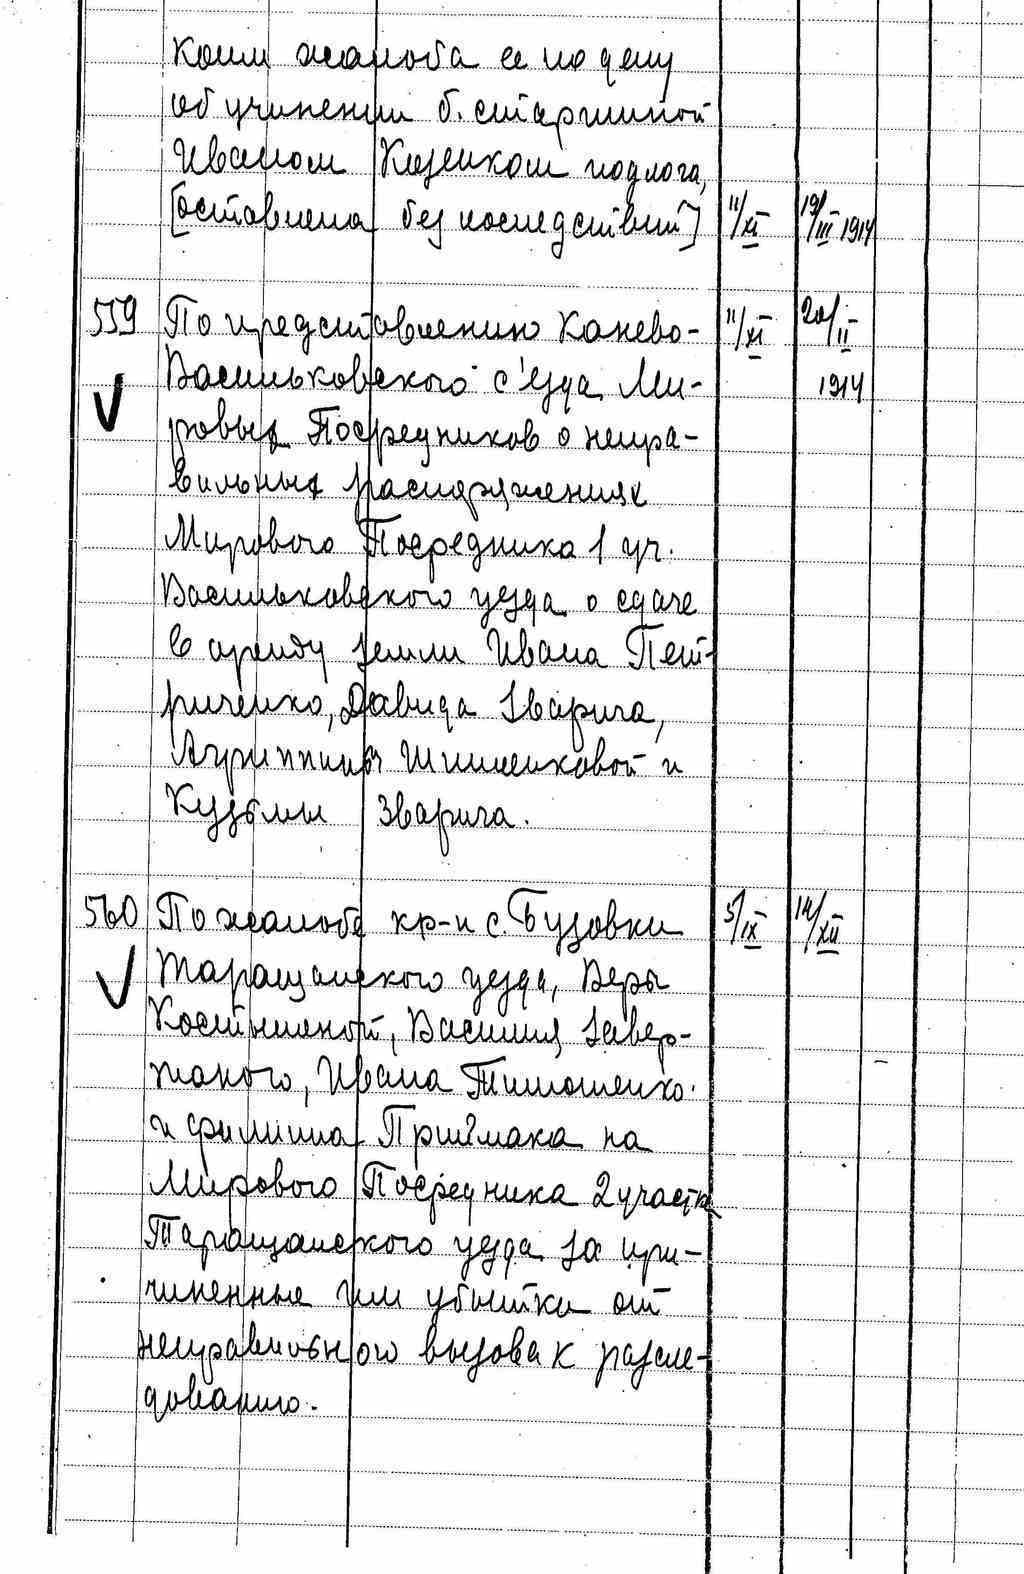 коим жалоба ее по делу
об учинении б. старшиной
Иваном Козенком подлога,
[оставлена без последствий] 11/XI 19/III 1914
559 По представлению Канево- 11/XI 20/II
Васильковского с'езда Ми- 1914
ровых Посредников о непра-
вильных распоряжениях
Мирового Посредника 1 уч.
Васильковского уезда о сдаче
в аренду земли Ивана Пет-
риченко, Давида Зварича,
Агриппины Шишенковой и
Кузьмы Зварича.
560 По жалобе кр-н с. Бузовки 5/IX 14/XII
Таращанского уезда, Веры
Костышеной, Василия Завер-
таного, Ивана Тимошенко
и Филиппа Приймака на
Мирового Посредника 2 участка
Таращанского уезда за при-
чиненные им убытки от
неправильного вызова к рассле-
дованию.